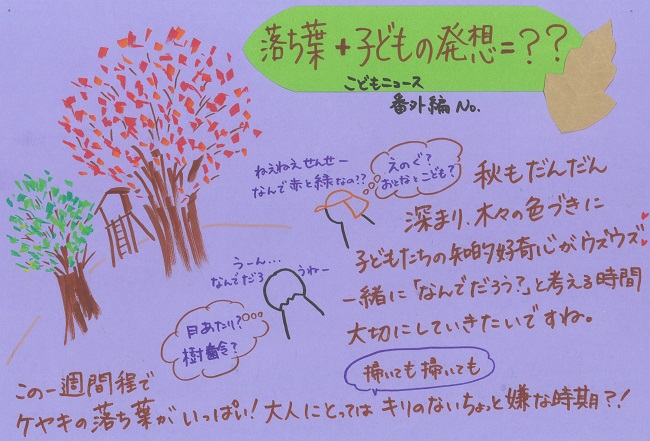 落ち葉+子どもの発想=??
こどもニュース
番外編 No.
ねぇねぇせんせー
なんで赤と緑なの!?
えのぐ?
おとなとこども?
秋もだんだん
深まり、木々の色づきに
子どもたちの知的好奇心がウズウズ
一緒に「なんでだろう?」と考える時間
大切にしていきたいですね。
うーん...
なんでだろ
うねー
日あたり?
樹齢?
掃いても掃いても
この一週間程で
ケヤキの落ち葉がいっぱい!大人にとってはキリのないちょっと嫌な時期?!